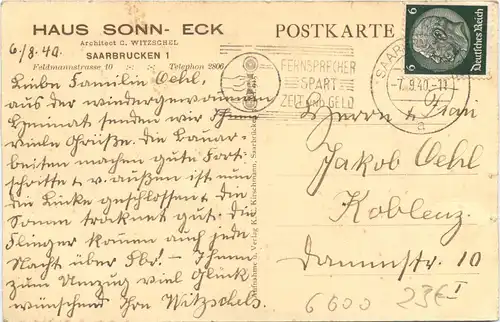 HAUS SONN- ECK
Architect C. WITZSCHEL
SAARBRUCKEN 1
Feldmannstrasse 10 Telephon 2806
POSTKARTE
6/8.40.
Liebe Familie Oehl,
aus der wiedergewonnenen
Heimat senden wir Ihnen
viele Grüße. Die Bauar-
beiten machen gute Fort-
schritte u. v. außen ist nun
die Lücke geschlossen & die
Sonne troknet gut. Die
Flieger kommen auch jede
Nacht über Sbr. - Ihnen
zum Umzug viel Glück
wünschend Ihre Witzschels
FERNSPRECHER
SPART
ZEIT UND GELD
6 Deutsches Reich 6
SAARBRÜCKEN
-7.9.40.-11
a
Herrn & Frau
Jakob Oehl
Koblenz.
Dammstr. 10
6600 23E I
Aufnahme u. Verlag K. Kirschmann, Saarbrücken